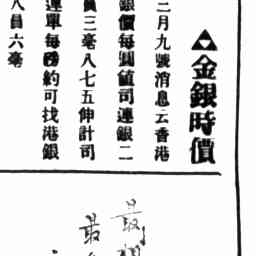 金銀時價
二月九號消息云香港
銀價每圓値司連銀二
員三毫八七五伸計司
連單每磅約可找港銀
八員六毫
最
最